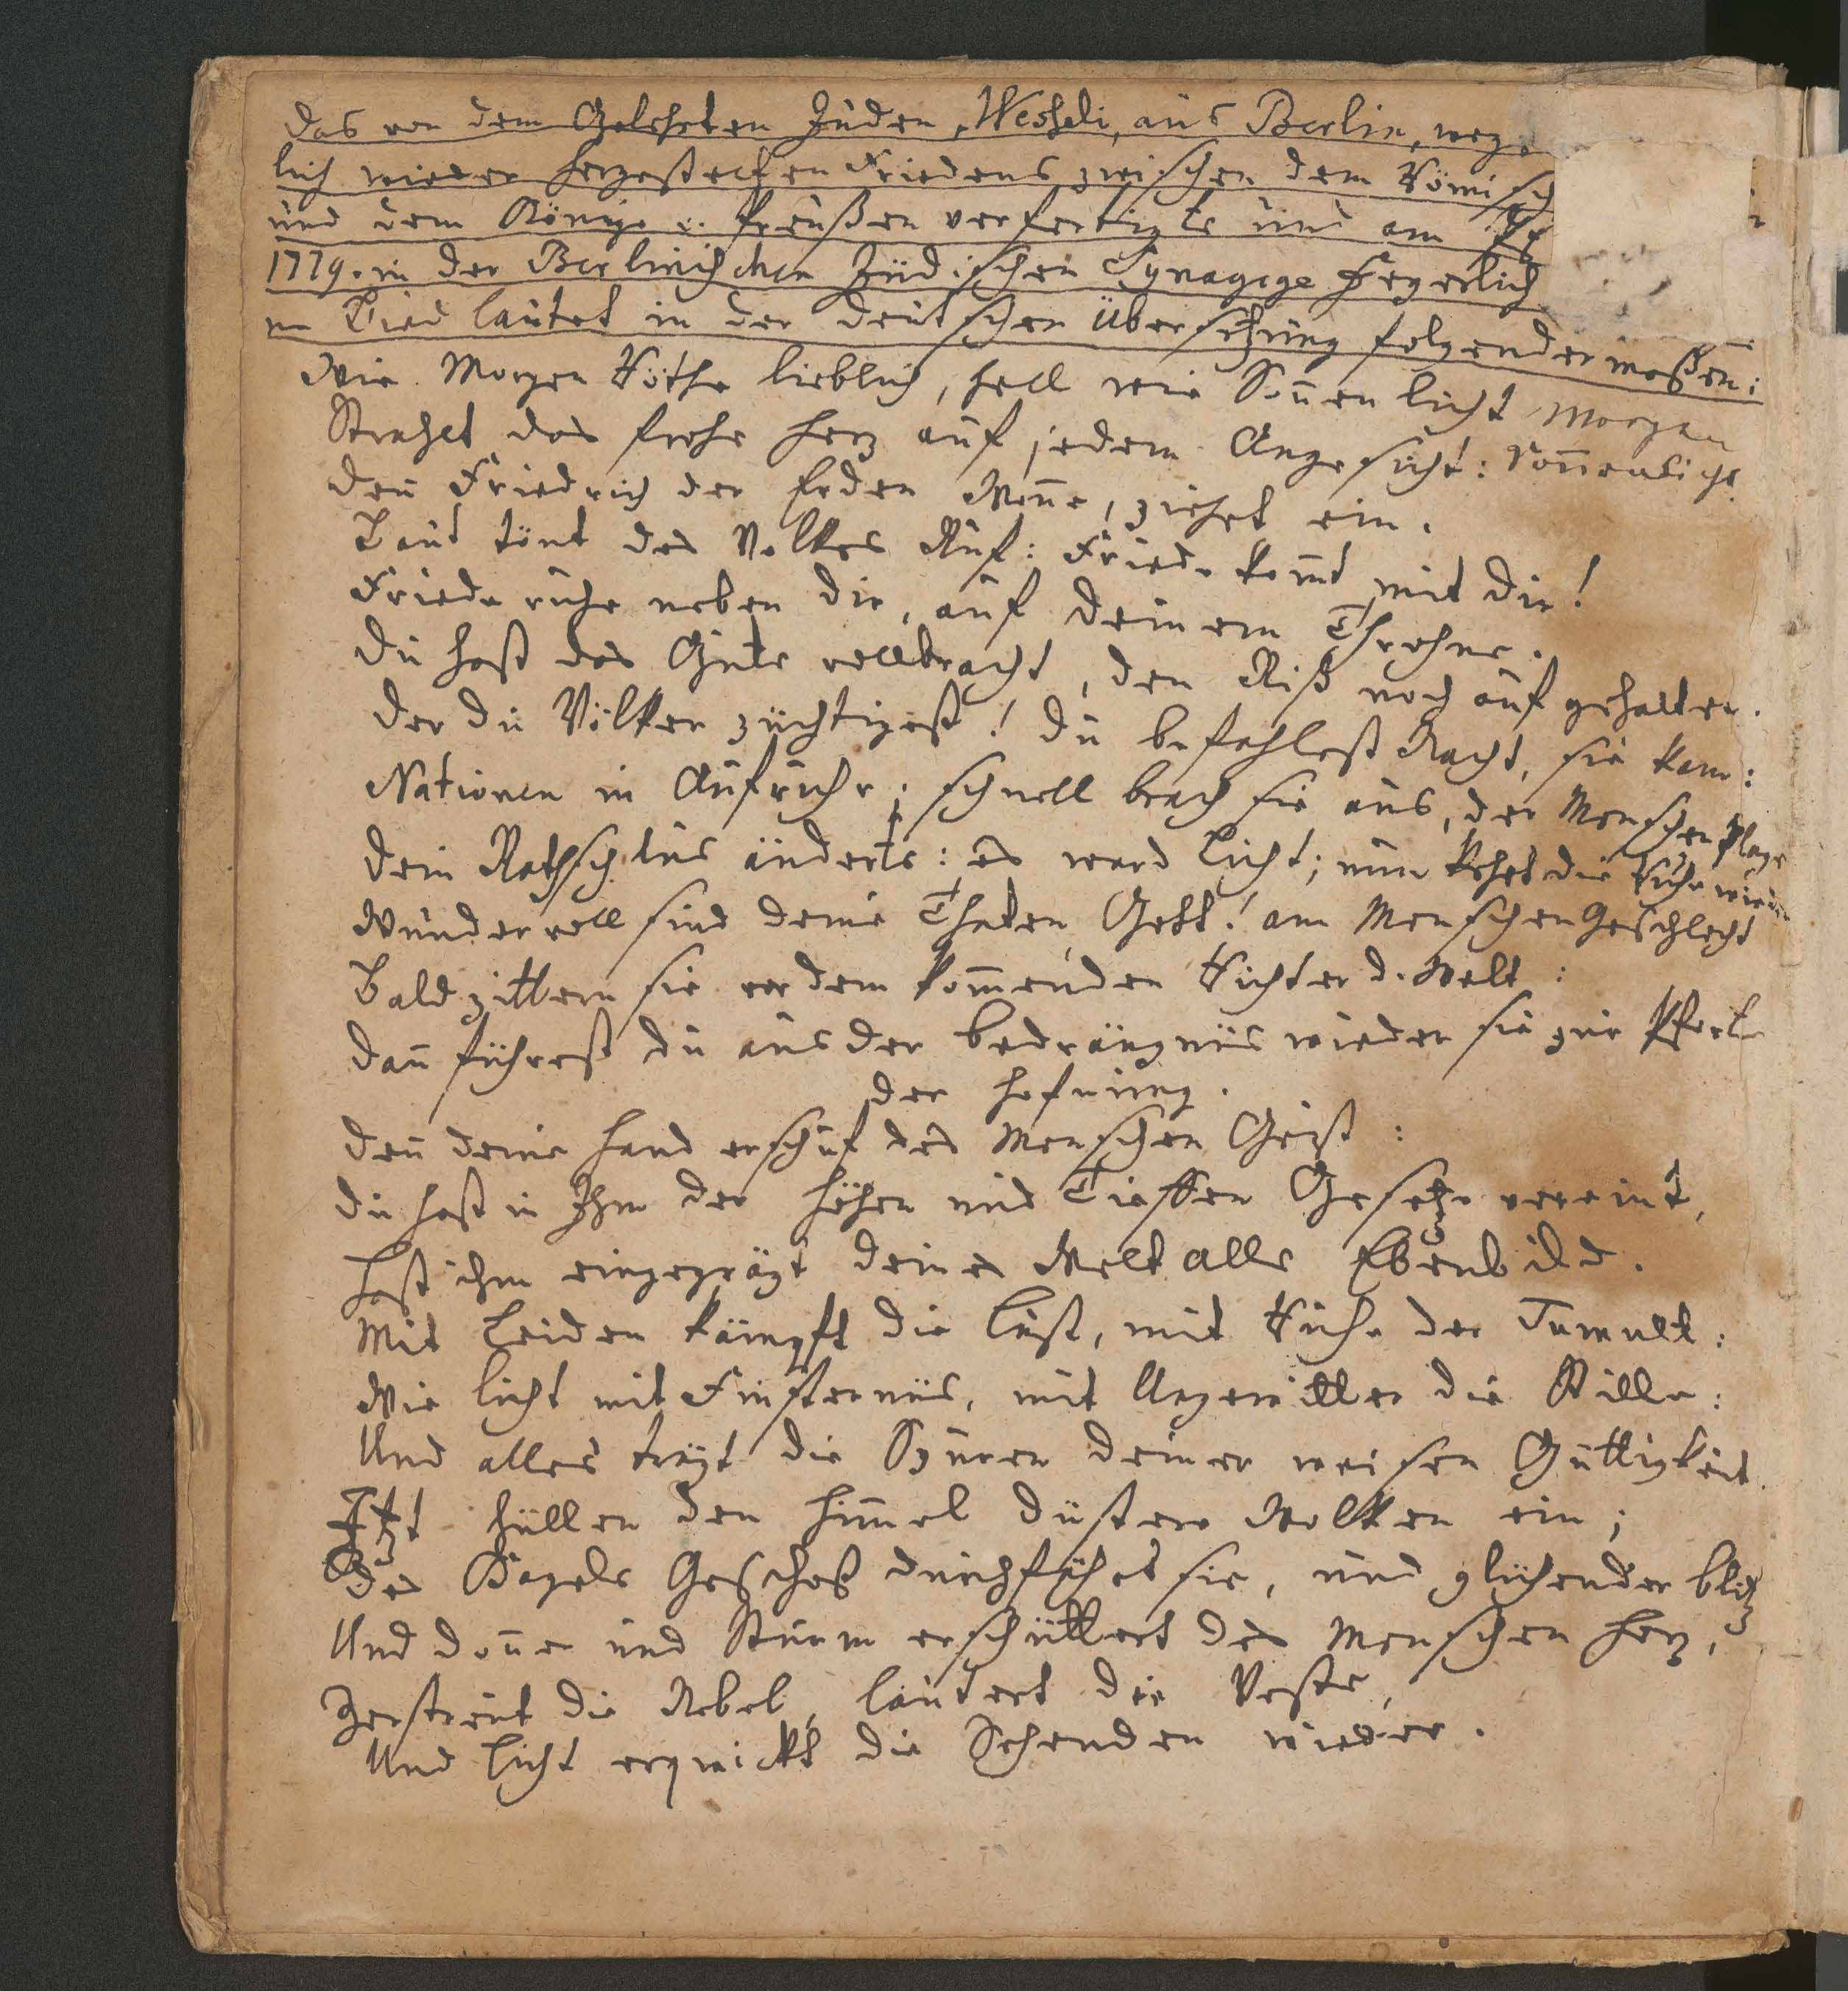 Das von dem Gelehrten Juden, Wesseli, aus Berlin, weg
lich wieder hergestelten Friedens zwischen dem Römisch
und dem Könige v. Preußen verfertigte und am
1779. in der Berlinischen Jüdischen Synagoge feyerlich
ne Lied lautet in der deutschen Übersetzung folgendermaßen:
Wie Morgen Röthe lieblich, hell wie Soñen licht Morgen
Strahlet das frohe Herz auf jedem Angesicht: Soñenlicht
Deñ Friedrich der Erden Woñe, ziehet ein.
Laut tönt des Volkes Ruf: Friede kom̃t mit dir!
Friede ruhe neben dir, auf deinem Throhne.
Du hast das Gute vollbracht, den Riß noch auf gehalten.
Der du Völker züchtigest! Du befahlest Nacht, sie kam:
Nationen in Aufruhr; schnell brach sie aus, der Menschen Plage
Dein Rathschlus änderts: es ward Licht; nun kehrt die Ruhe wieder
Wundervoll sind deine Thaten, Gott! am Menschen Geschlecht
Bald zittern sie vor dem kom̃enden Richter d. Welt:
Dañ führest du aus der Bedrängnüs wieder sie zur Pforte
der Hofnung.
Deñ deine Hand erschuf des Menschen Geist:
Du hast in Ihm der Höhen und Tieffen Gesetze vereint,
Hast ihm eingeprägt deines Weltalls Ebenbild.
Mit Leiden kämpft die Lust, mit Ruhe der Tumult:
Wie Licht mit Finsternüs, mit Ungewitter die Stille:
Und alles trägt die Spuren deiner weisen Güttigkeit.
Itzt hüllen den Him̃el düstere Wolken ein;
Des Hagels Geschoß durchfährt sie, und glühender Blitz
Und Doñer und Sturm erschüttert des Menschen Herz,
Zerstreut die Nebel, läutert die Veste,
Und Licht erquickt die Sehenden wieder.